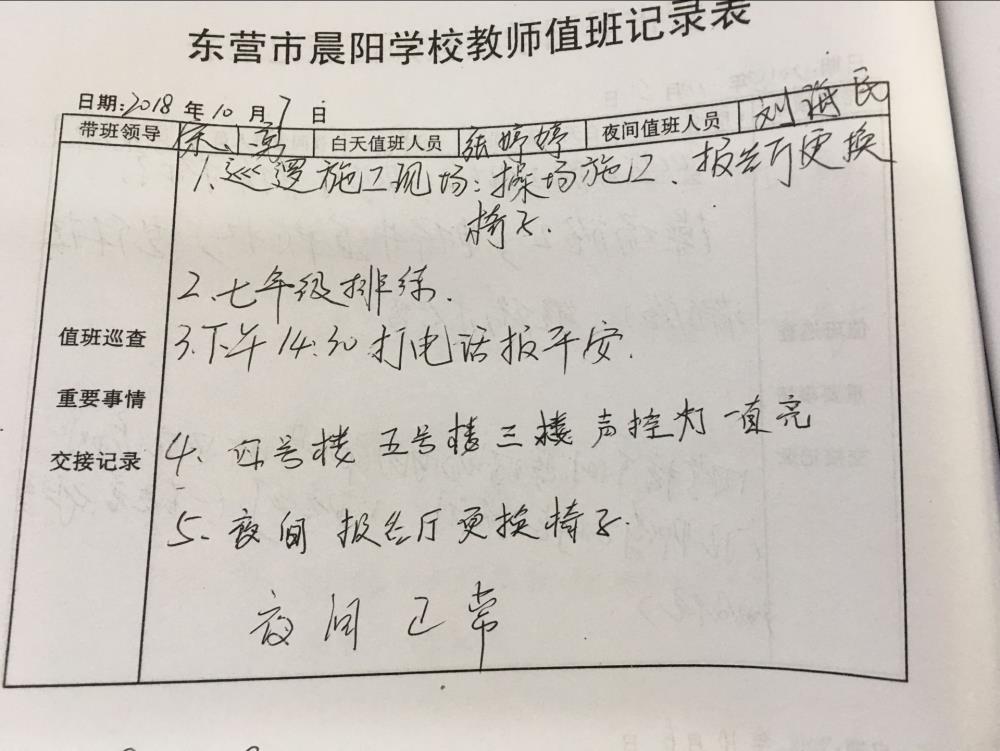 东营市晨阳学校教师值班记录表
日期:2018 年 10 月 7 日
带班领导 徐小勇 白天值班人员 张婷婷 夜间值班人员 刘海民
1.巡逻施工现场:操场施工、报告厅更换
椅子.
2.七年级排练.
值班巡查 3.下午14:30打电话报平安.
重要事情
交接记录 4、四号楼 五号楼 三楼 声控灯一直亮
5、夜间 报告厅更换椅子.
夜间正常